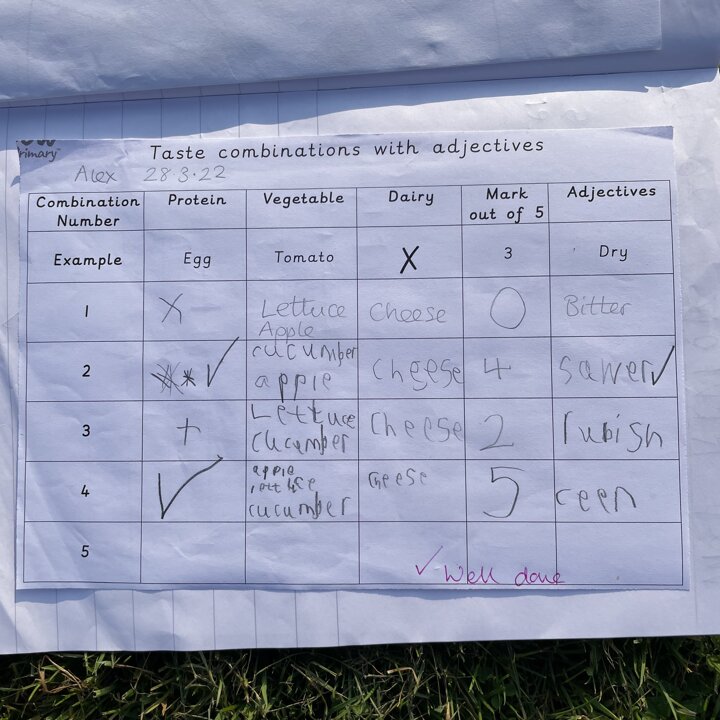 rimary
Taste combinations with adjectives
Alex 28.3.22
Combination Number Protein Vegetable Dairy Mark out of 5 Adjectives
Example Egg Tomato X 3 Dry
1 X Lettuce Apple Cheese 0 Bitter
2 ✓ cucumber apple chgese 4 sawer ✓
3 + Lettuce cucumber cheese 2 rubish
4 ✓ apple cucumber cheese 5 reen
5
✓ Well done